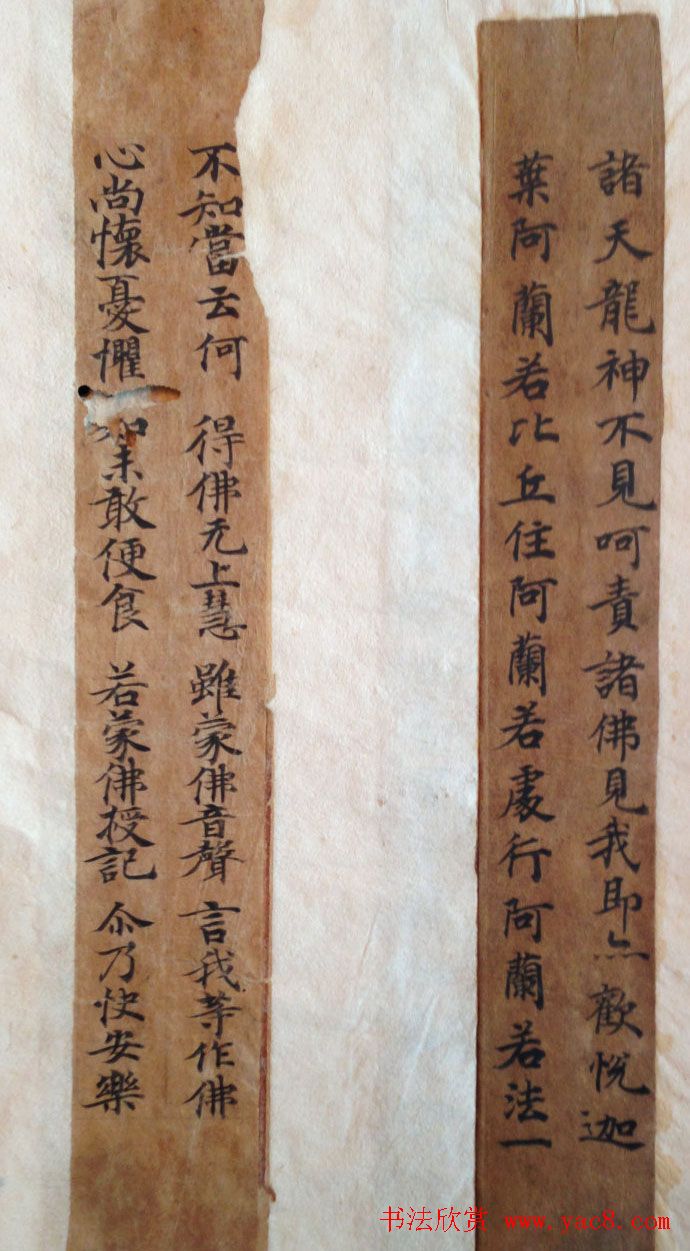 諸天龍神不見呵責諸佛見我即亡歡悅迦
葉阿蘭若比丘住阿蘭若處行阿蘭若法一
不知當云何 得佛无上慧 雖蒙佛音聲 言我等作佛
心尚懷憂懼 如未敢便食 若蒙佛授記 尒乃快安樂
书法欣赏 www.yac8.com